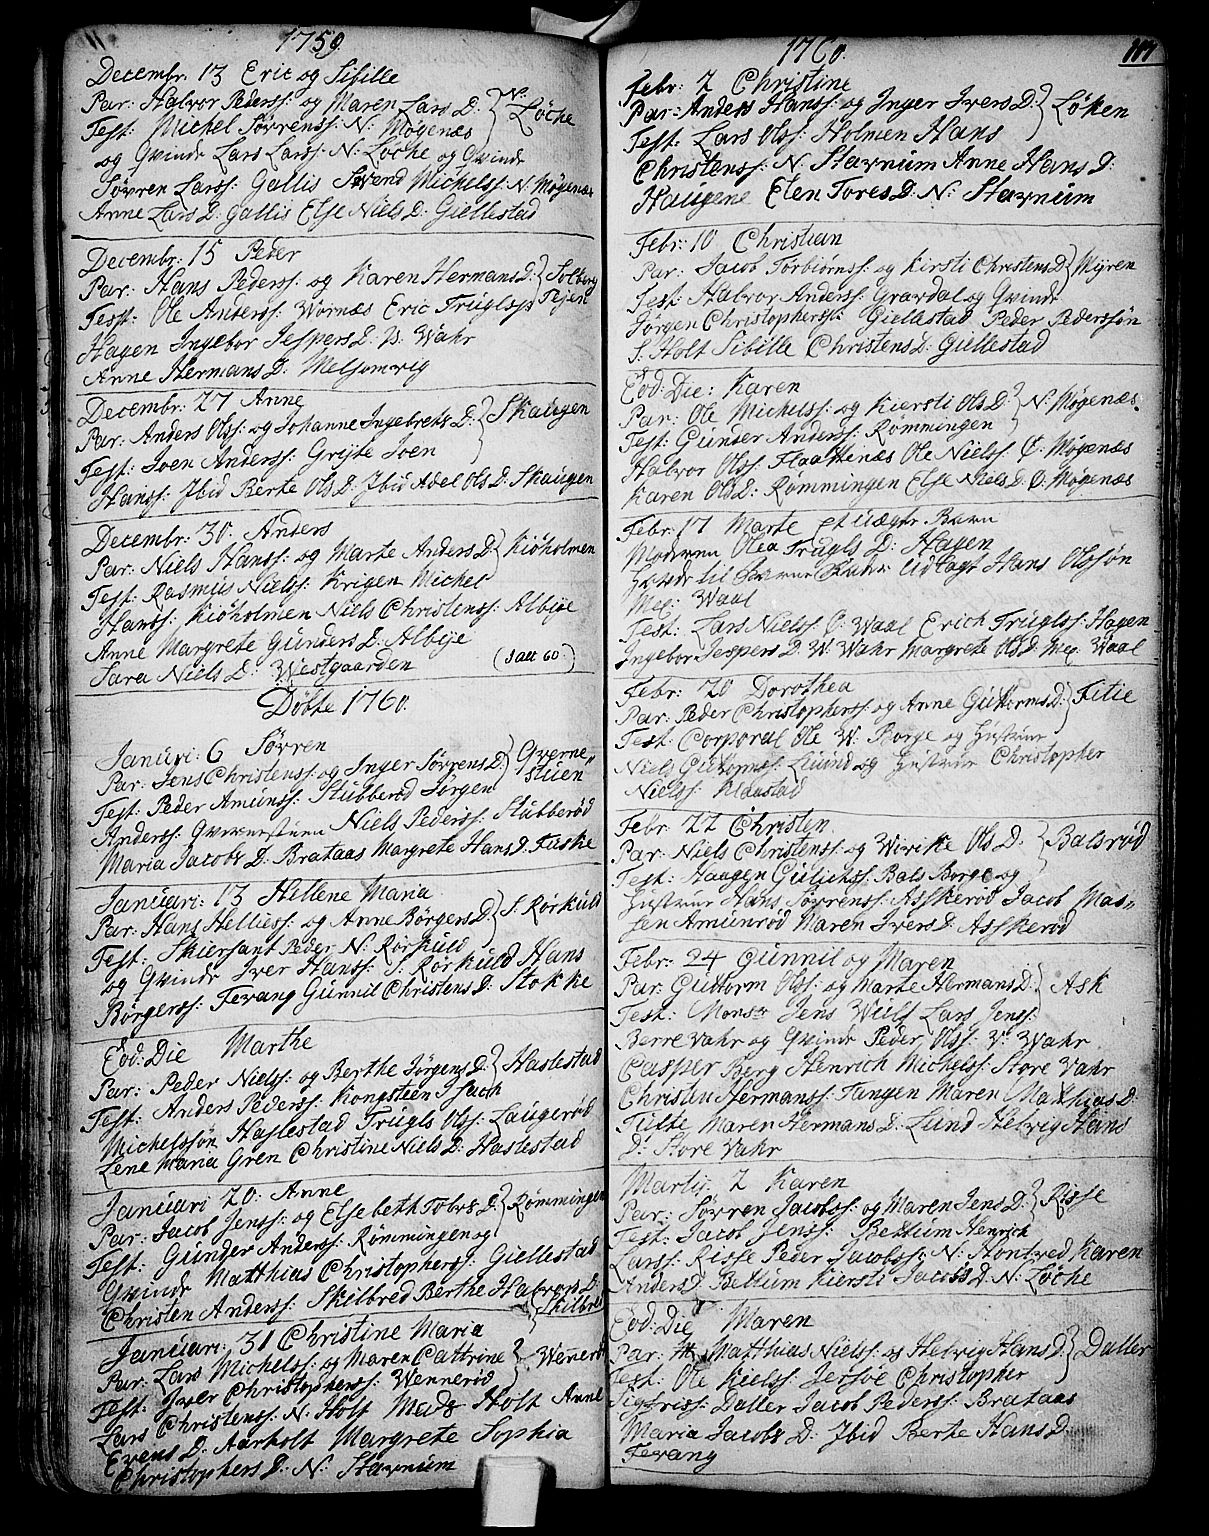 11
1759
Decembr: 13 Eric og Sibille
Par: Halvor Pederss: og Maren Lars D: } N: Løcke
Test: Michel Sørrenss: N: Møgenæs
og Qvinde Lars Larss: N: Løcke og Qvinde
Sørren Larss: Gallis Svend Michelss: N: Møgenæs
Anne Lars D: Gallis Else Niels D: Giellestad
Decembr: 15 Peder
Par: Hans Pederss: og Karen Hermans D: } Solberg
Test: Ole Anderss: Wornæs Eric Truglss: Eijen
Hagen Ingebor Jespers D: W: Wahr
Anne Hermans D: Melsomvig
Decembr: 27 Anne
Par: Anders Olss: og Johanne Ingebrets D: } Skaugen
Test: Joen Anderss: Grijte Joen
Hanss: Ibid Berte Ols D: Ibid Abel Ols D: Skaugen
Decembr: 30. Anders
Par: Niels Hanss: og Marte Anders D: } Kiøholmen
Test: Rasmus Nielss: Krigen Michel
Hanss: Kiøholmen Niels Christenss: Albije
Anne Margrete Gunders D: Albije
Sara Niels D: Westgaarden (Jatt 60.)
Døbte 1760.
Januri: 6 Sørren
Par: Jens Christenss: og Inger Sørrens D: } Qverne„
Test: Peder Amunss: Stubberød Jørgen stuen
Anderss: Qvernstuen Niels Pederss: Stubberød
Maria Jacobs D: Brataas Margrete Hans D: Fuske
Januari: 13 Hellene Maria
Par: Hans Helliess: og Anne Børgers D: } S. Rørkuld
Test: Skiersant Peder N: Rørkuld
og Qvinde Iver Hanss: S: Rørkuld Hans
Børgerss: Fevang Gunnil Christens D: Stokke
Eod: Die Marthe
Par: Peder Nielss: og Berthe Jørgens D: } Haslestad
Test: Anders Pederss: Kongsteen Isach
Michelssøn Haslestad Trugls Olss: Laugerød
Lene Maria Gren Christine Niels D: Haslestad
Januari 20: Anne
Par: Jacob Jenss: og Elsebeth Tobrs D: } Rømmingen
Test: Gunder Anderss: Rømmingen og
Qvinde Matthias Christopherss: Giellestad
Christen Anderss: Skilbred Berthe Halvors D: } Skilbred
Januari: 31 Christine Maria
Par: Lars Michelss: og Maren Cattrine } Wenerød
Test: Iver Christopherss: Wennerød
Lars Christenss: N: Holt Mads Holt Anne
Evens D: Aarholt Margrete Sophia
Christophers D: N: Stavnum
1760.
117
Febr: 2 Christine
Par: Anders Hanss: og Inger Ivers D: } Løken
Test: Lars Olss: Holmen Hans
Christenss: N: Stavnum Anne Hans D:
Haugene Elen Tores D: N: Stavnum
Febr: 10 Christian
Par: Jacob Torbiørnss: og Kirsti Christens D: } Myren
Test: Halvor Anderss: Gravdal og Qvinde
Jørgen Christopherss: Giellestad Peder Pederssøn
S. Holt Sibille Christens D: Giellestad
Eod: Die: Karen
Par: Ole Michelss: og Kiersti Ols D: } N: Møgenæs
Test: Gunder Anderss: Rømmingen
Halvor Olss: Flaattenæs Ole Nielss: Ø: Møgenæs
Karen Ols D: Rømmingen Else Niels D: Ø: Møgenæs
Febr: 17 Marte et uægte Barn
Moderen Olea Trugls D: Hagen
Udlagt Hans Olssøn
Mel: Waal
Test: Lars Nielss: O: Waal Erich Truglss: Hagen
Ingebor Jespers D: W: Wahr Margrete Ols D: Mel: Waal
Febr: 20 Dorothea
Par: Peder Christopherss: og Anne Guttorms D: } Fitie
Test: Corporal Ole W: Borge og Hustrue
Niels Guttormss: Lund og Hustrue Christopher
Nielss: Klaustad
Febr: 22 Christen
Par: Niels Christenss: og Wirike Ols D: } Balsrød
Test: Haagen Gulichss: Bals Borge og
Hustrue Hans Sørrenss: Askerød Jacob Mas„
sen Amunrød Maren Ivers D: Askerød
Febr: 24 Gunnil og Maren
Par: Guttorm Olss: og Marte Hermans D: } Ask
Test: Monsr Jens Wiels Lars Jenss:
Berre Vahr og Qvinde Peder Olss: W: Wahr
Casper Berg Henrich Michelss: Store Vahr
Christen Hermanss: Tangen Maren Matthias D:
Tufte Maren Hermans D: Lund Helvig Hans
D: Store Vahr
Martij 2 Karen
Par: Sørren Jacobss: og Maren Jens D: } Risse
Test: Jacob Jenss: Bettum Henrich
Larss: Risse Peder Jacobss: N: Hontved Karen
Anders D: Bettum Kiersti Jacobs D: N: Løcke
Eod: Die Maren
Par: Matthias Nielss: og Helvig Hans D: } Daller
Test: Ole Kielss: Jersøe Christopher
Sigfriss: Daller Jacob Pederss: Brataas
Maria Jacobs D: Ibid Berthe Hans D:
Fevang